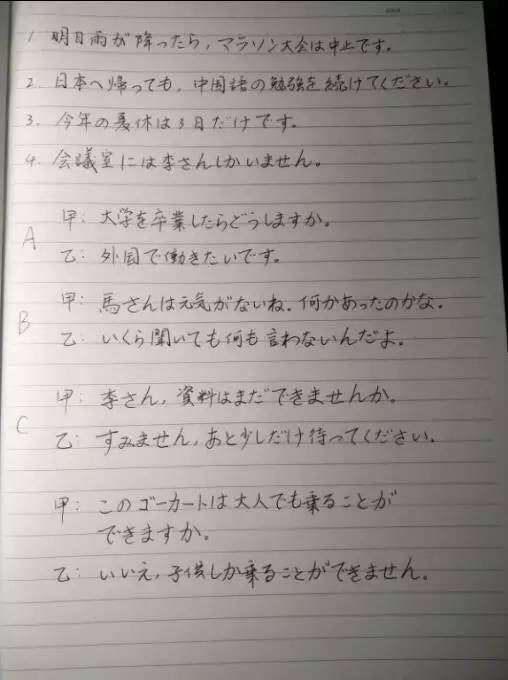 1. 明日雨が降ったら, マラソン大会は中止です。
2. 日本へ帰っても, 中国語の勉強を続けてください。
3. 今年の夏休は3日だけです。
4. 会議室には李さんしかいません。
A
甲: 大学を卒業したらどうしますか。
乙: 外国で働きたいです。
B
甲: 馬さんは元気がないね. 何かあったのかな.
乙: いくら聞いても何も言わないんだよ.
C
甲: 李さん, 資料はまだできませんか。
乙: すみません, あと少しだけ待ってください。
甲: このゴーカートは大人でも乗ることが
できますか。
乙: いいえ, 子供しか乗ることができません。